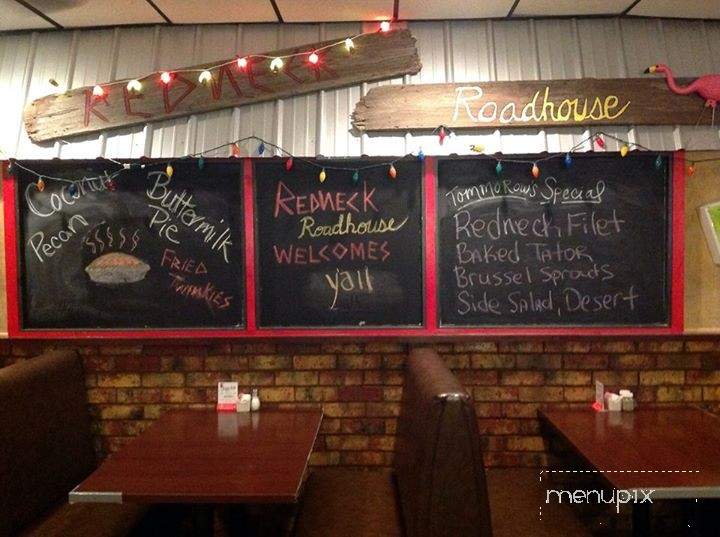 REDNECK
Roadhouse
Coconut
Pecan
Buttermilk
Pie
FRIED
TWINKIES
REDNECK
Roadhouse
WELCOMES
y'all
TommoRow's Special
Redneck Filet
Baked Tator
Brussel Sprouts
Side Salad, Desert
menupix